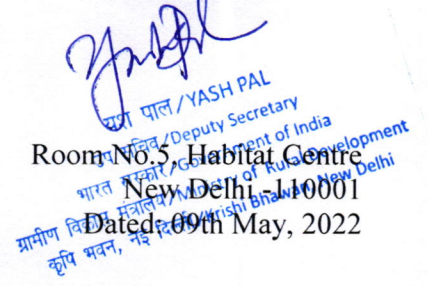 यश पाल/YASH PAL
उप सचिव/Deputy Secretary
भारत सरकार/Government of India
ग्रामीण विकास मंत्रालय/Ministry of Rural Development
कृषि भवन, नई दिल्ली/Krishi Bhawan, New Delhi
Room No.5, Habitat Centre
New Delhi -110001
Dated: 09th May, 2022